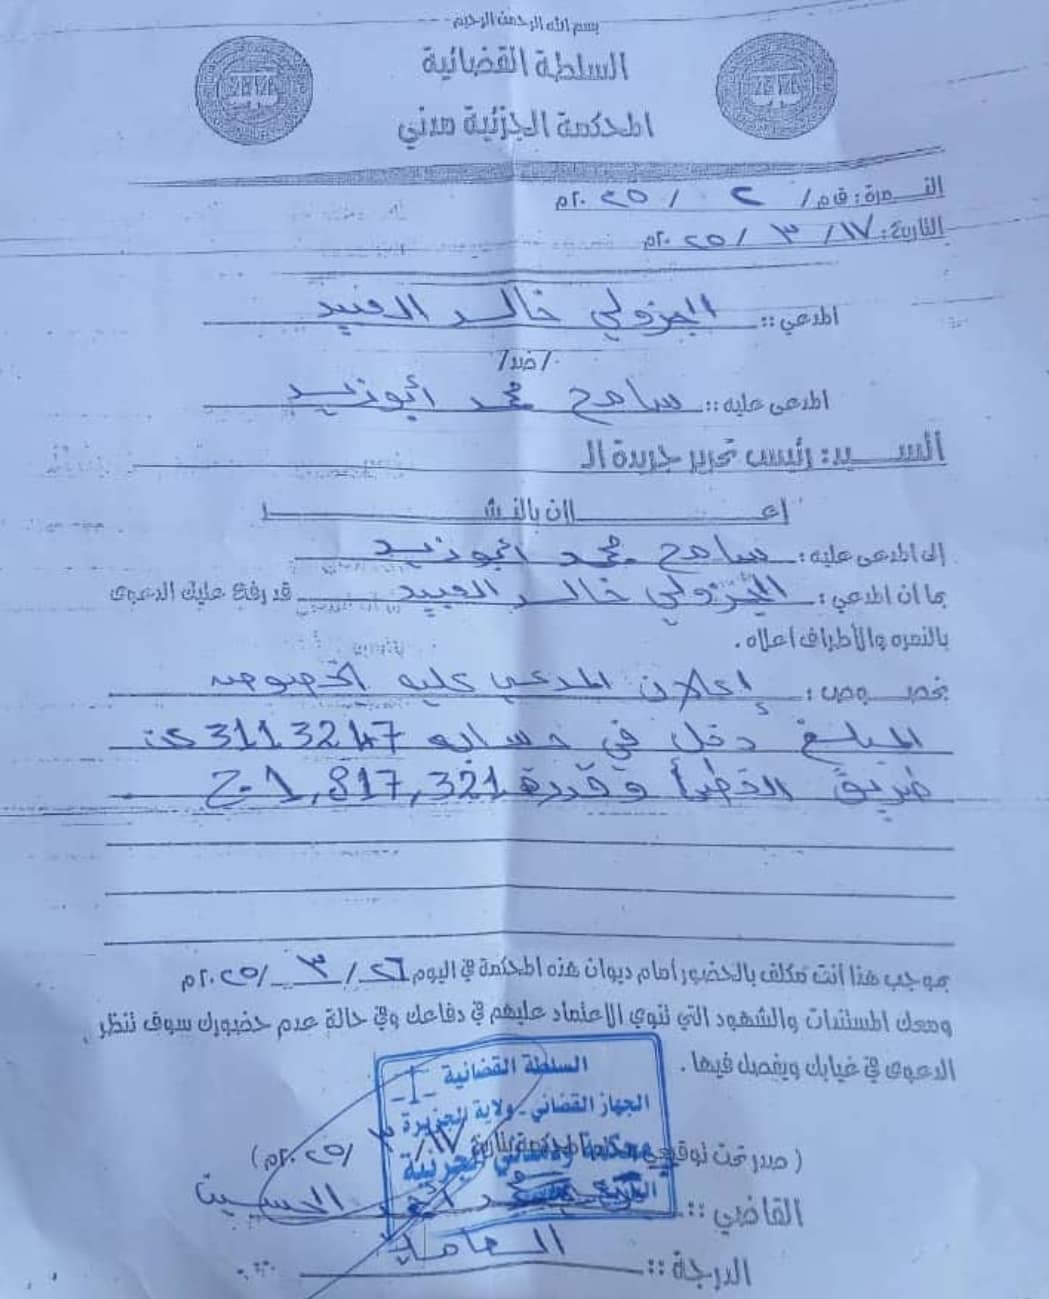 بسم الله الرحمن الرحيم
السلطة القضائية
المحكمة الجزئية مدني
النمرة: ق م/ ٢ / ٢٠٢٥م
التاريخ: ١٧/ ٣ / ٢٠٢٥م
المدعي :: الجزولي خالد العبيد
/ضد/
المدعى عليه :: سامح محمد أبوزيد
السيد: رئيس تحرير جريدة الـ
إعلان بالنشر
إلى المدعى عليه: سامح محمد أبوزيد
بما ان المدعي: الجزولي خالد العبيد قد رفع عليك الدعوى
بالنمره والأطراف اعلاه.
بخصوص: إعلان المدعي عليه بخصوص
المبلغ دخل في حسابه 3113247 عن
طريق الخطأ وقدره 1,817,321 ج
بموجب هذا أنت مكلف بالحضور أمام ديوان هذه المحكمة في اليوم ٢٦/ ٣ /٢٠٢٥م
ومعك المستندات والشهود التي تنوي الاعتماد عليهم في دفاعك وفي حالة عدم حضورك سوف تنظر
الدعوى في غيابك ويفصل فيها.
السلطة القضائية
الجهاز القضائي - ولاية الجزيرة
(صدر تحت توقيعي وختم المحكمة بتاريخ ١٧/ ٣ /٢٠٢٥م)
القاضي ::
الدرجة ::